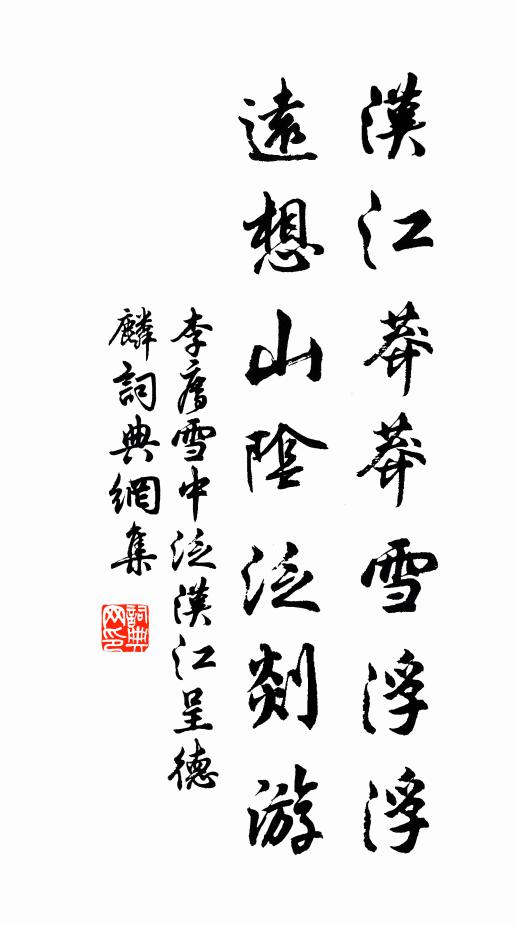 漢江莽莽雪浮浮
遠想山陰泛剡游
李廌雪中泛漢江呈德
麟詞典網集
詞典
网印